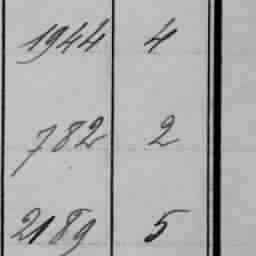 1944 4
782 2
2189 5